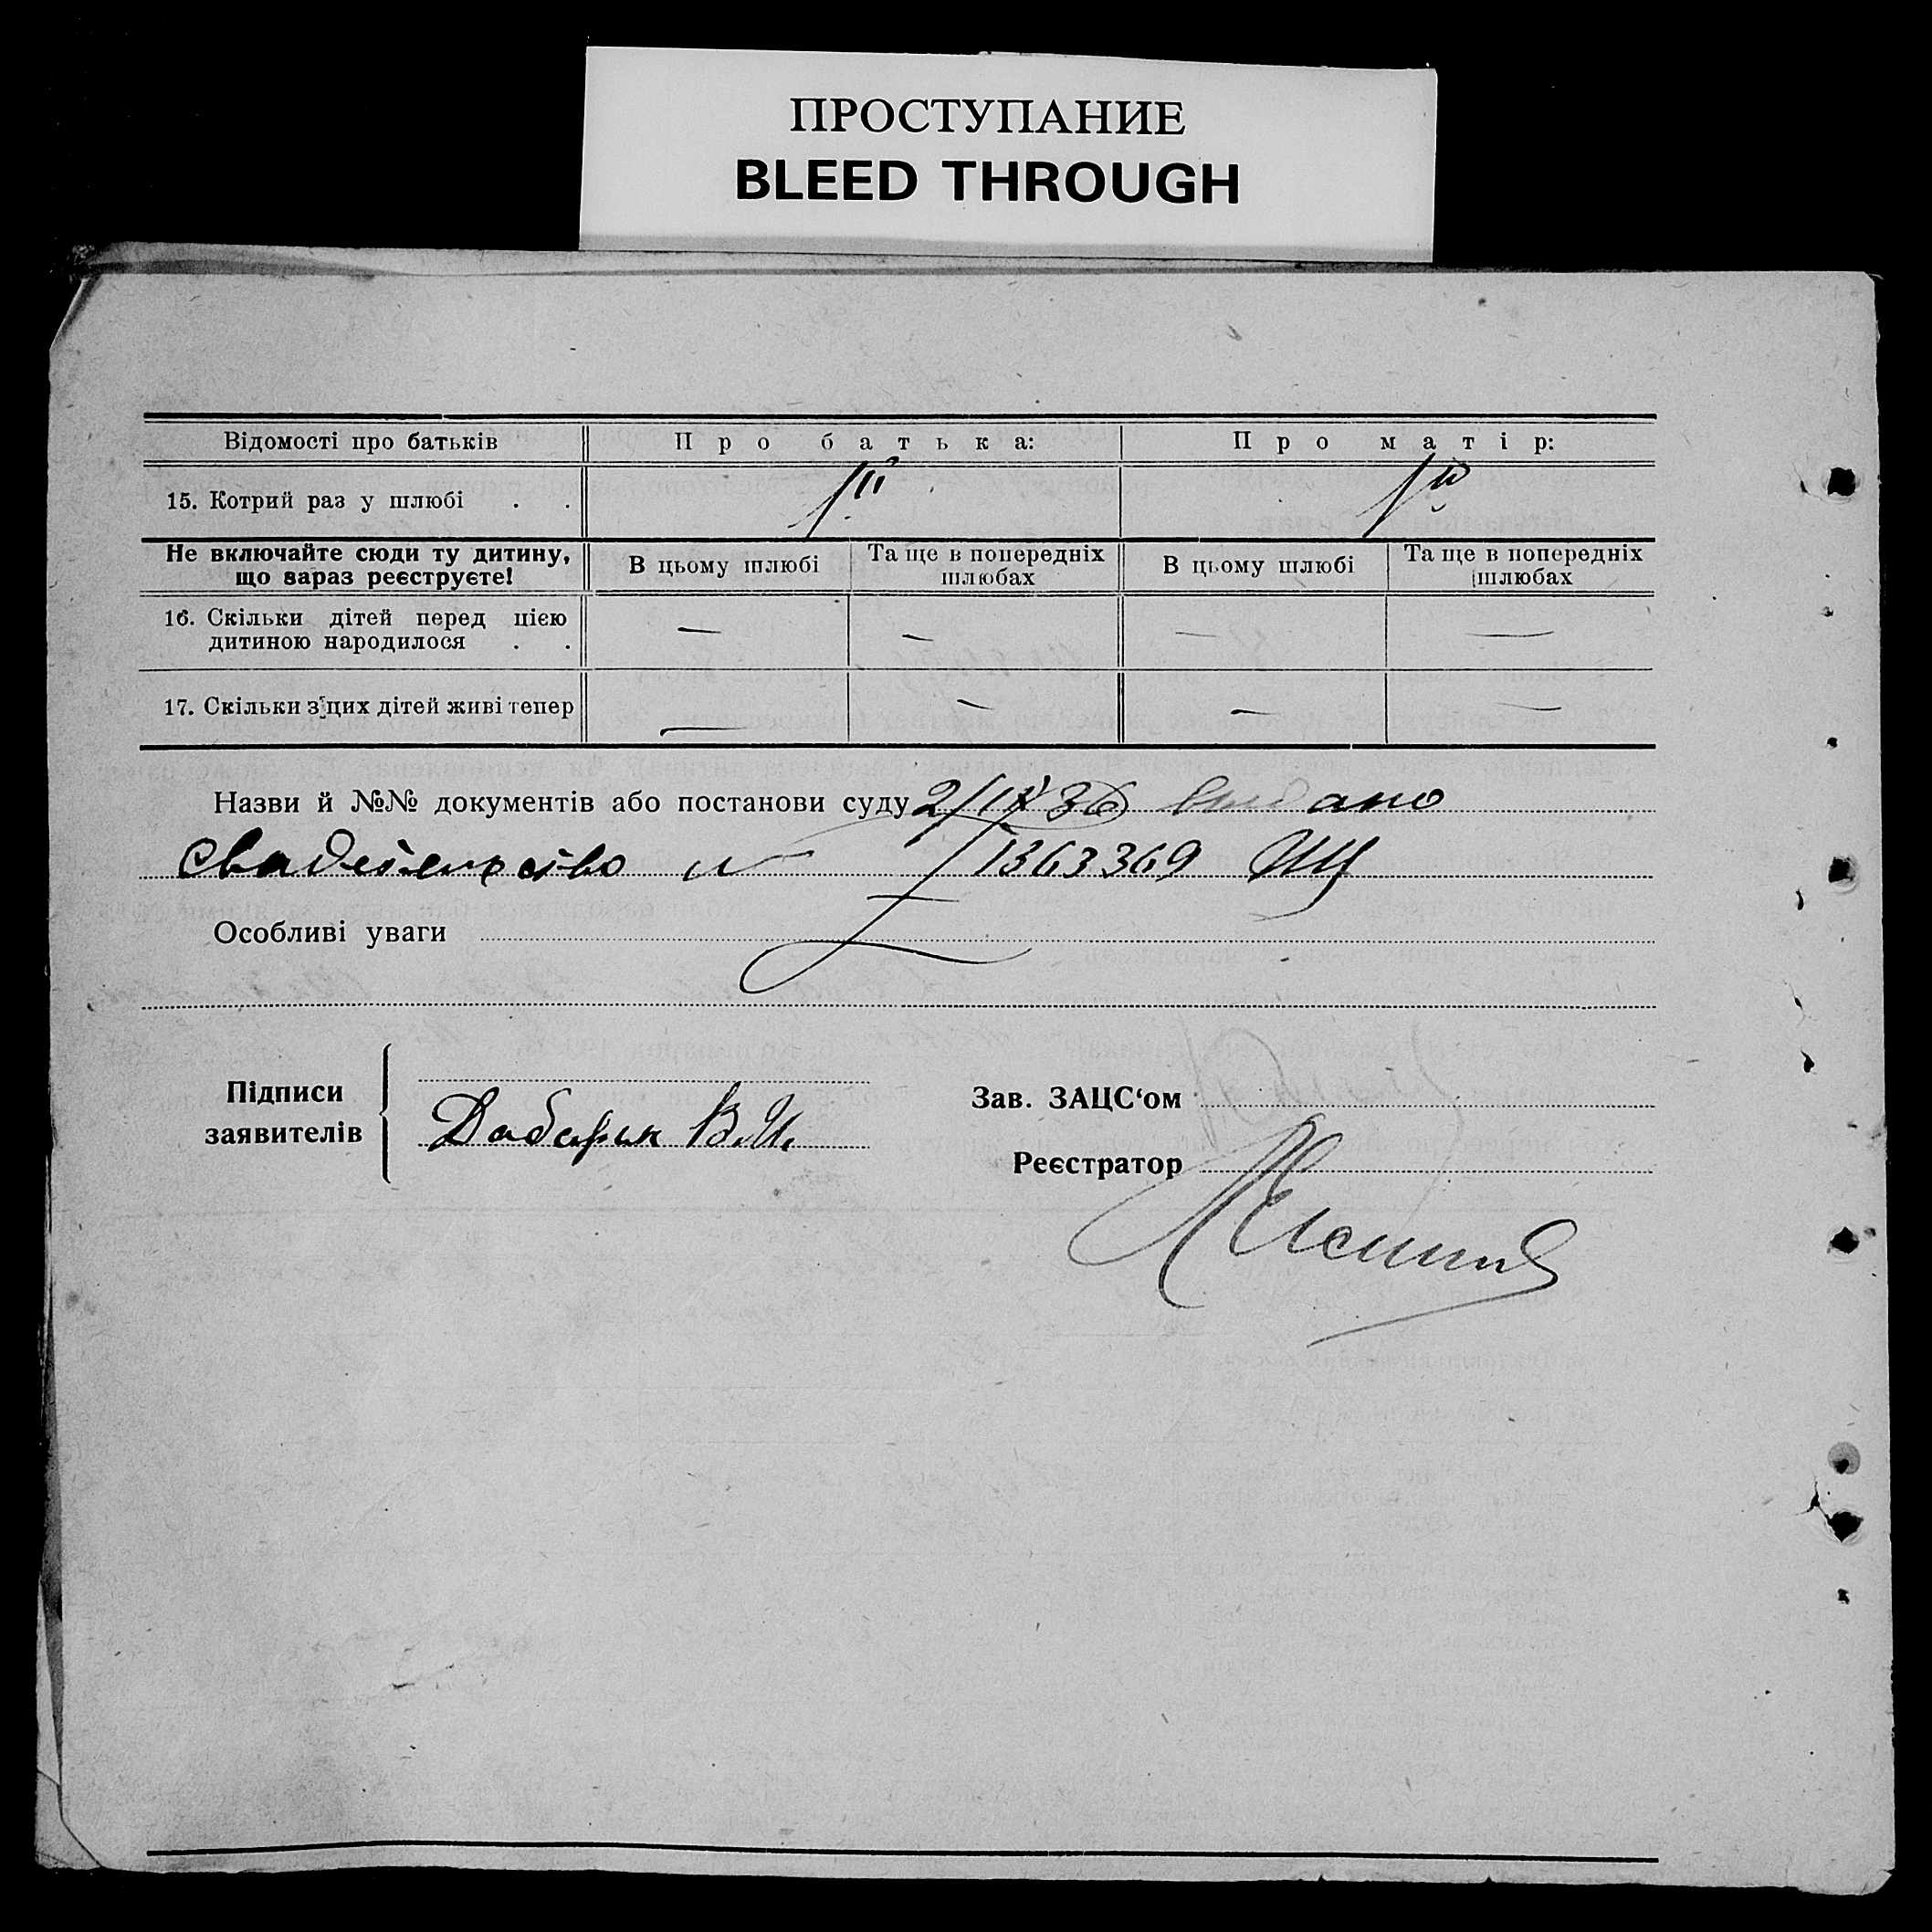 ПРОСТУПАНИЕ
BLEED THROUGH
Відомості про батьків Про батька: Про матір:
15. Котрий раз у шлюбі . . 1ый 1ый
Не включайте сюди ту дитину, що зараз реєструєте! В цьому шлюбі Та ще в попередніх шлюбах В цьому шлюбі Та ще в попередніх шлюбах
16. Скільки дітей перед цією
дитиною народилося . . — — — —
17. Скільки з цих дітей живі тепер — — — —
Назви й №№ документів або постанови суду 2/IX 36 выдано
Свидетельство 1363369
Особливі уваги
Підписи
заявителів
В.И.
Зав. ЗАЦС‘ом
Реєстратор